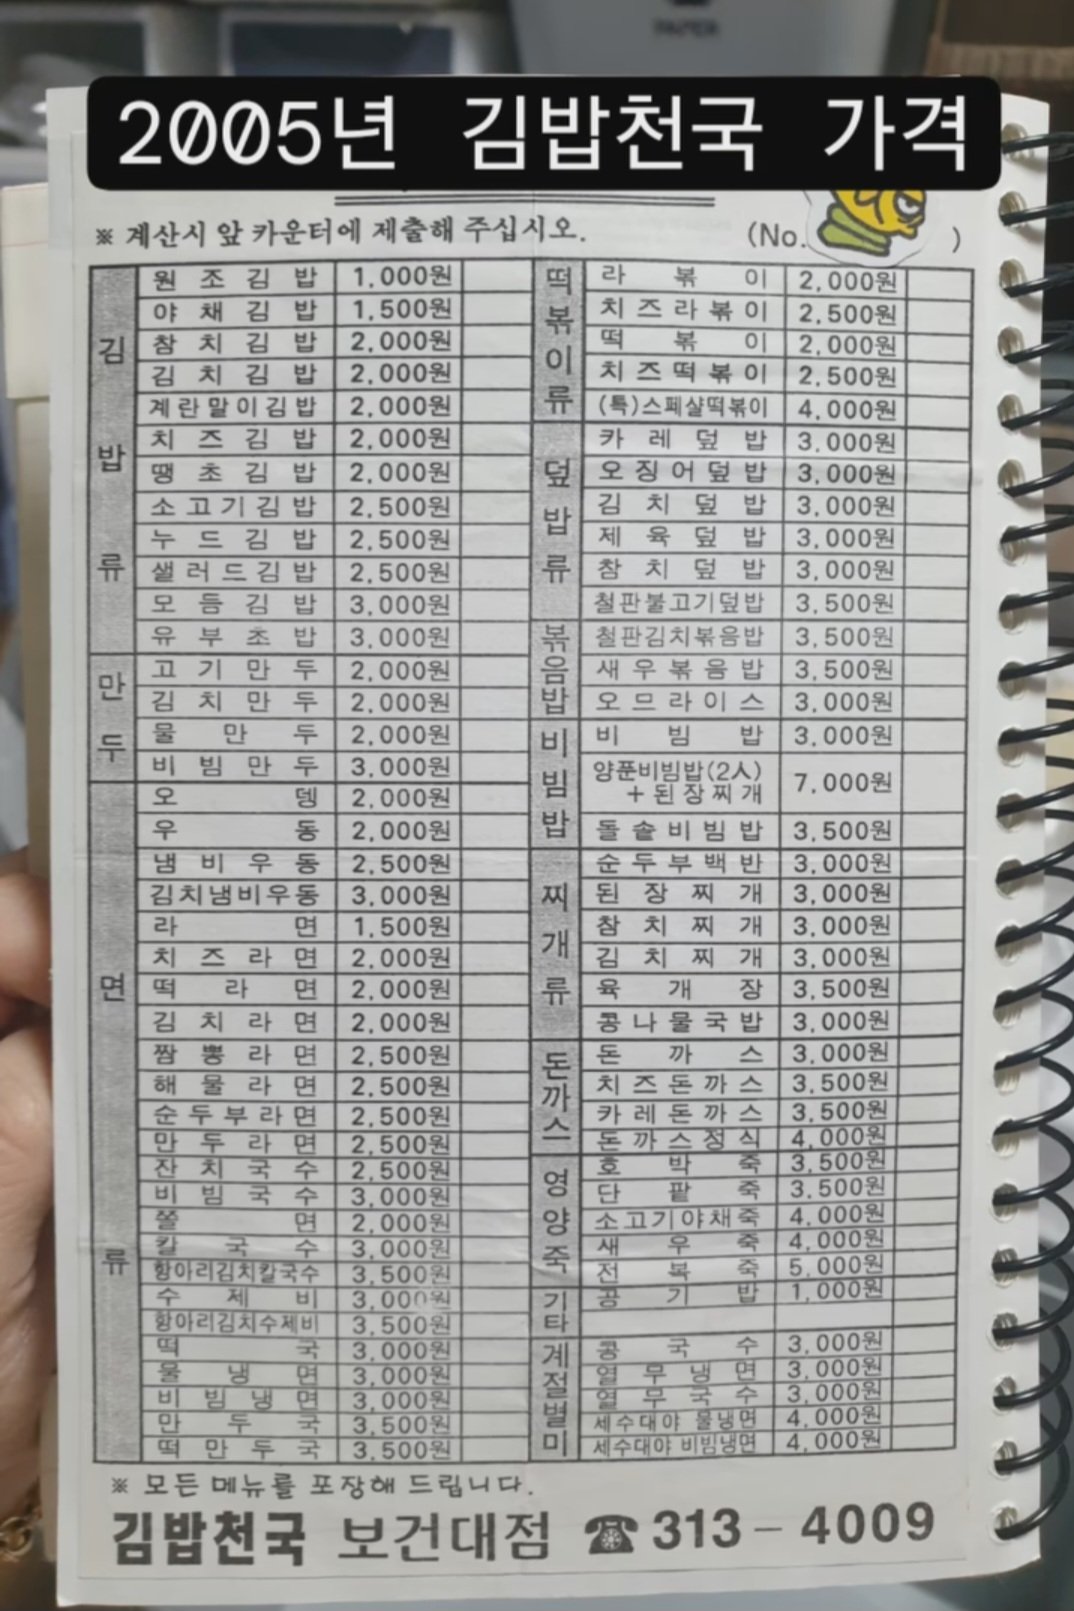 2005년 김밥천국 가격
※ 계산시 앞 카운터에 제출해 주십시오.
(No. )
김밥류
원조김밥 1,000원
야채김밥 1,500원
참치김밥 2,000원
김치김밥 2,000원
계란말이김밥 2,000원
치즈김밥 2,000원
땡초김밥 2,000원
소고기김밥 2,500원
누드김밥 2,500원
샐러드김밥 2,500원
모듬김밥 3,000원
유부초밥 3,000원
만두
고기만두 2,000원
김치만두 2,000원
물만두 2,000원
비빔만두 3,000원
면류
오뎅 2,000원
우동 2,000원
냄비우동 2,500원
김치냄비우동 3,000원
라면 1,500원
치즈라면 2,000원
떡라면 2,000원
김치라면 2,000원
짬뽕라면 2,500원
해물라면 2,500원
순두부라면 2,500원
만두라면 2,500원
잔치국수 2,500원
비빔국수 3,000원
쫄면 2,000원
칼국수 3,000원
항아리김치칼국수 3,500원
수제비 3,000원
항아리김치수제비 3,500원
떡국 3,000원
물냉면 3,000원
비빔냉면 3,000원
만두국 3,500원
떡만두국 3,500원
떡볶이류
라볶이 2,000원
치즈라볶이 2,500원
떡볶이 2,000원
치즈떡볶이 2,500원
(특)스페샬떡볶이 4,000원
덮밥류
카레덮밥 3,000원
오징어덮밥 3,000원
김치덮밥 3,000원
제육덮밥 3,000원
참치덮밥 3,000원
철판불고기덮밥 3,500원
볶음밥
철판김치볶음밥 3,500원
새우볶음밥 3,500원
오므라이스 3,000원
비빔밥
비빔밥 3,000원
양푼비빔밥(2人)
+된장찌개 7,000원
돌솥비빔밥 3,500원
찌개류
순두부백반 3,000원
된장찌개 3,000원
참치찌개 3,000원
김치찌개 3,000원
육개장 3,500원
콩나물국밥 3,000원
돈까스
돈까스 3,000원
치즈돈까스 3,500원
카레돈까스 3,500원
돈까스정식 4,000원
영양죽
호박죽 3,500원
단팥죽 3,500원
소고기야채죽 4,000원
새우죽 4,000원
전복죽 5,000원
기타
공기밥 1,000원
계절별미
콩국수 3,000원
열무냉면 3,000원
열무국수 3,000원
세수대야 물냉면 4,000원
세수대야 비빔냉면 4,000원
※ 모든 메뉴를 포장해 드립니다.
김밥천국 보건대점 ☎ 313-4009